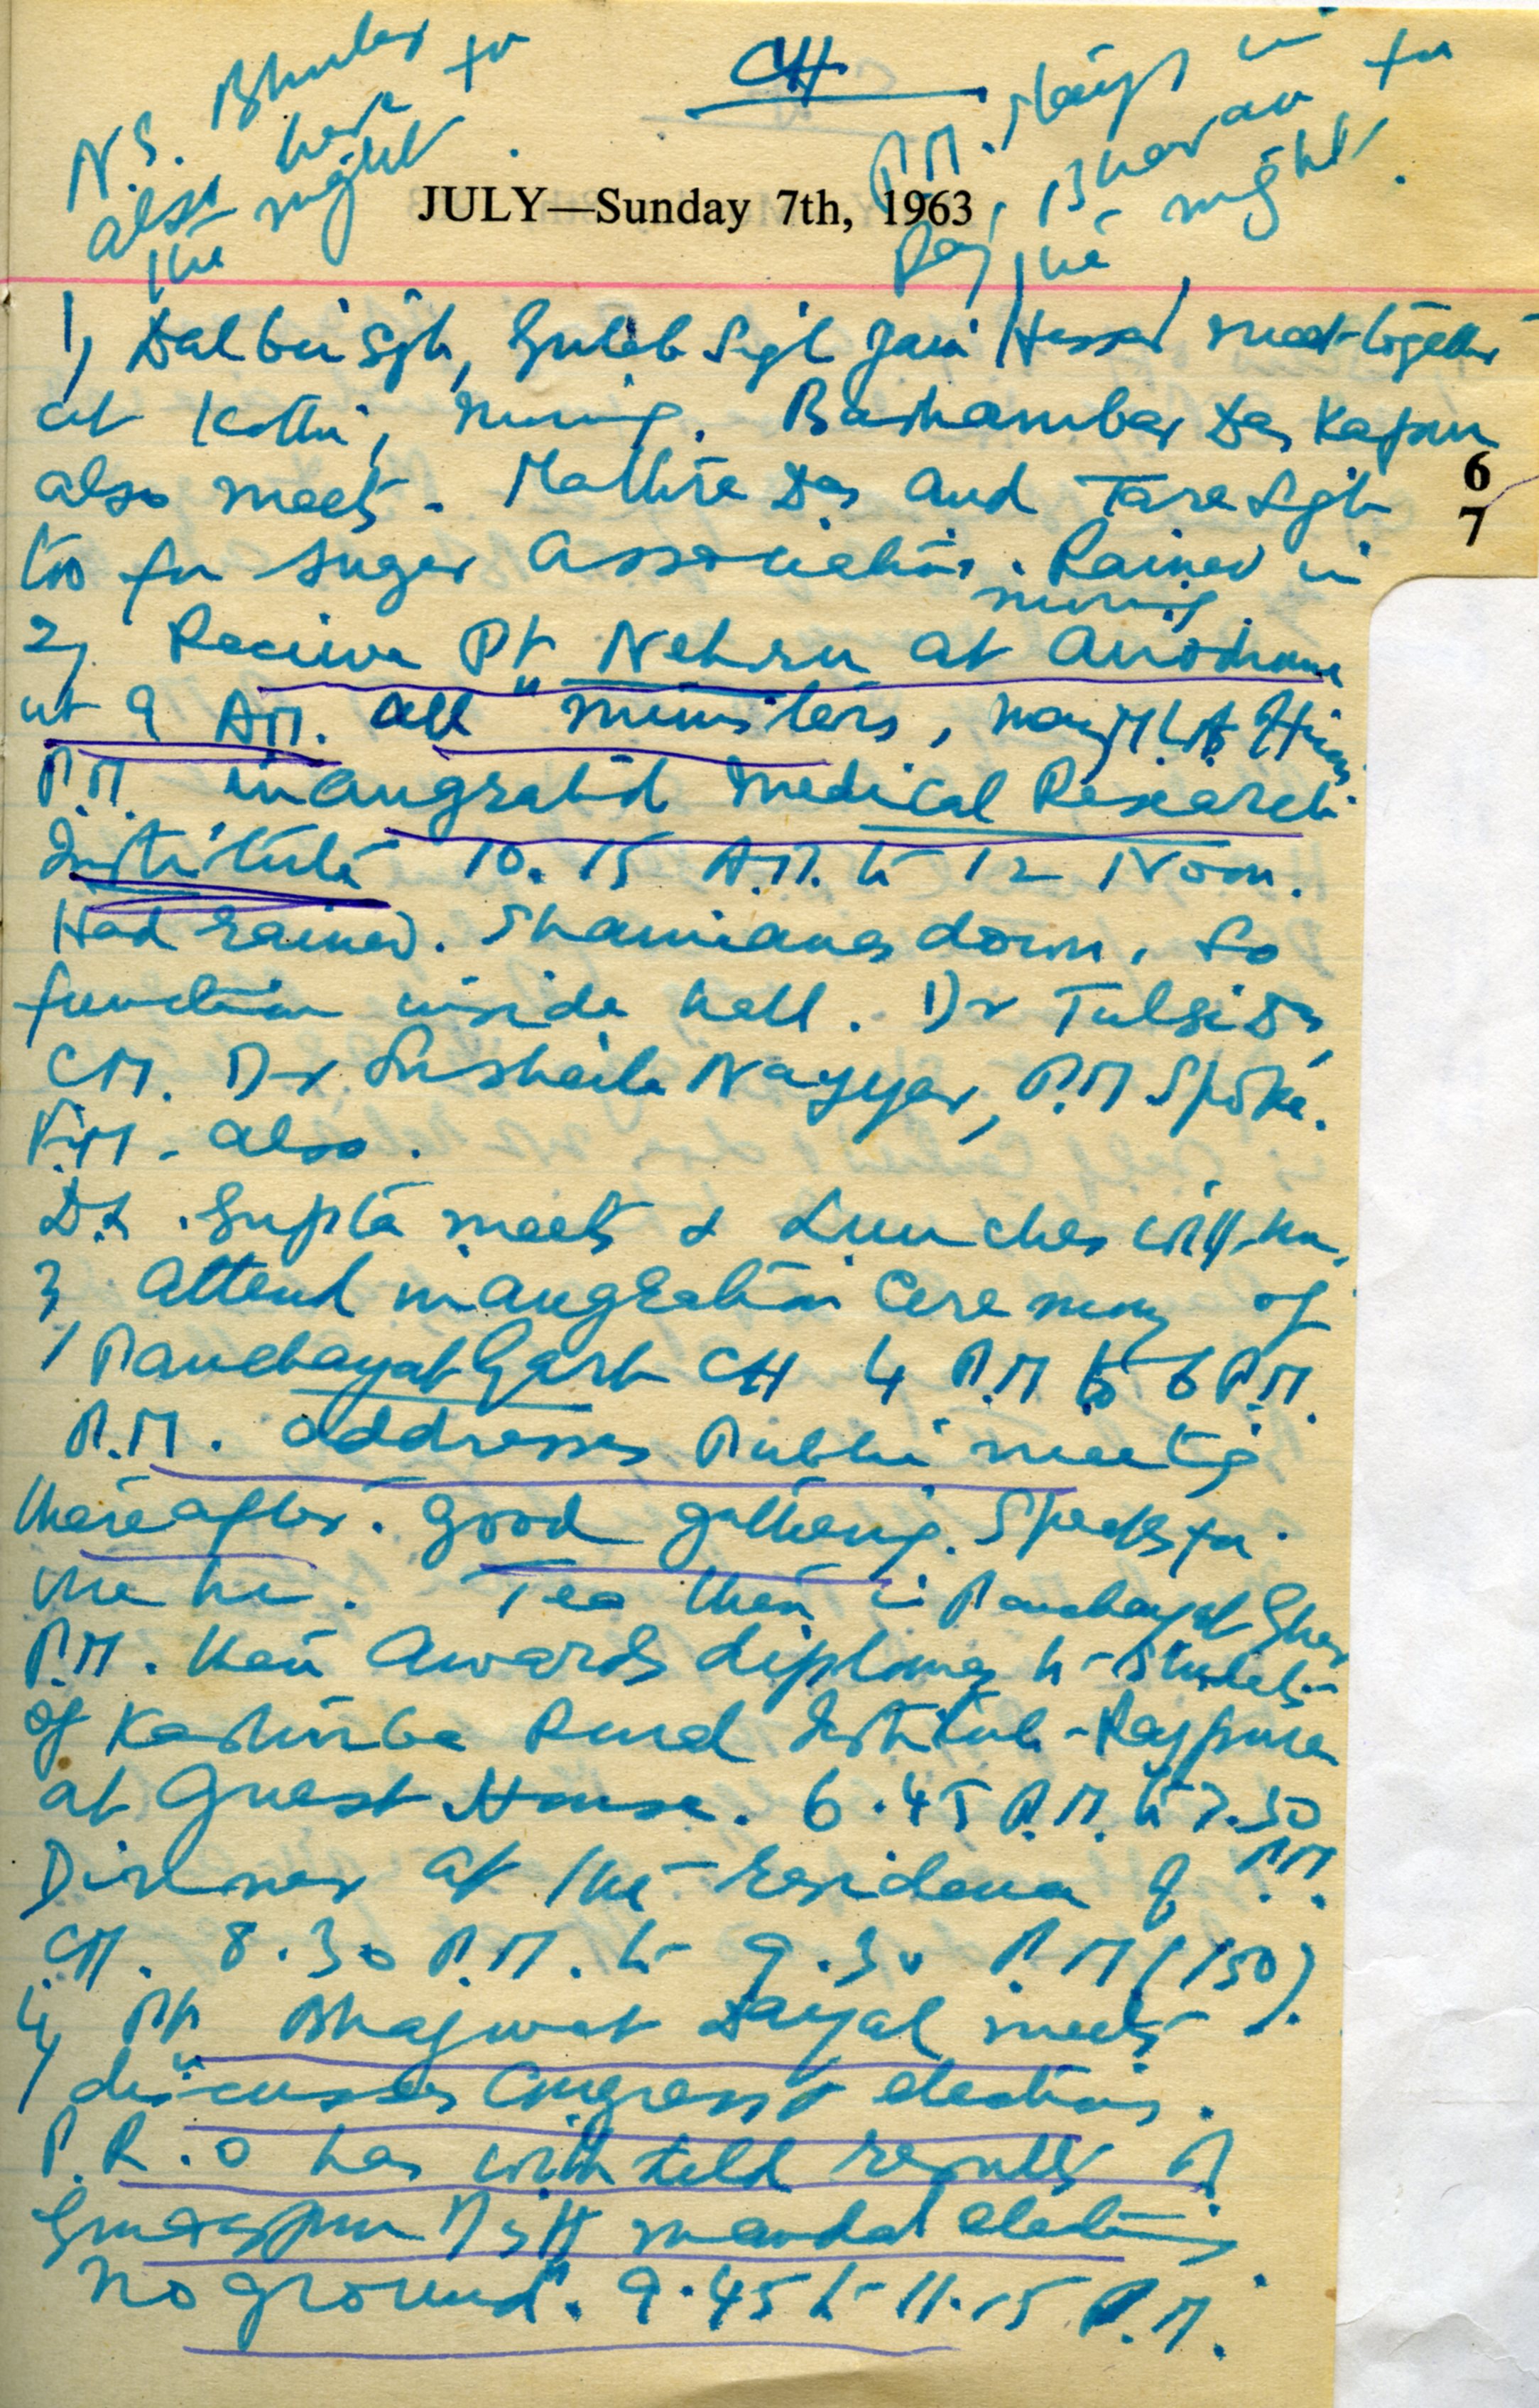 CH
N.S. Bhuler
also here for
the night.
P.M. stays in
Raj Bhavan for
the night.
JULY—Sunday 7th, 1963
1) Dalbir Sgh, Guleb Sigh Jain Hissar meet together
at Kothi, morning. Bashambar Das Kapur
also meets. Mathra Das and Tara Sgh
too for Sugar Association. Rained in
morning.
6
7
2) Receive Pt Nehru at Airodrome
at 9 AM. All ministers, many M.L.As
P.M. inaugrated Medical Research
Institute 10.15 A.M. to 12 Noon.
Had rained. Shamianas down. So
function inside hall. Dr Tulsi Das,
CM. Dr Susheila Nayyar, P.M Spoke.
also.
D.D. Gupta meets & Lunches with me.
3) Attend inaugration Ceremony of
Panchayat Garh CH 4 P.M to 6 P.M.
P.M. addresses Public meeting
thereafter. Good gathering. Speaks for
one hr. Tea then in Panchayat Ghar
P.M. then awards diplomas to Students
of Kasturba Rural Institute - Rajpura
at Guest House. 6.45 P.M. to 7.30
P.M.
Dinner at the residence of
CM. 8.30 P.M. to 9.30 P.M (150).
4) Pt Bhagwat Dayal meets
discusses Congress elections.
P.R.O has with held results of
Gurdaspur Distt mandal elections
No ground. 9.45 to 11.15 P.M.